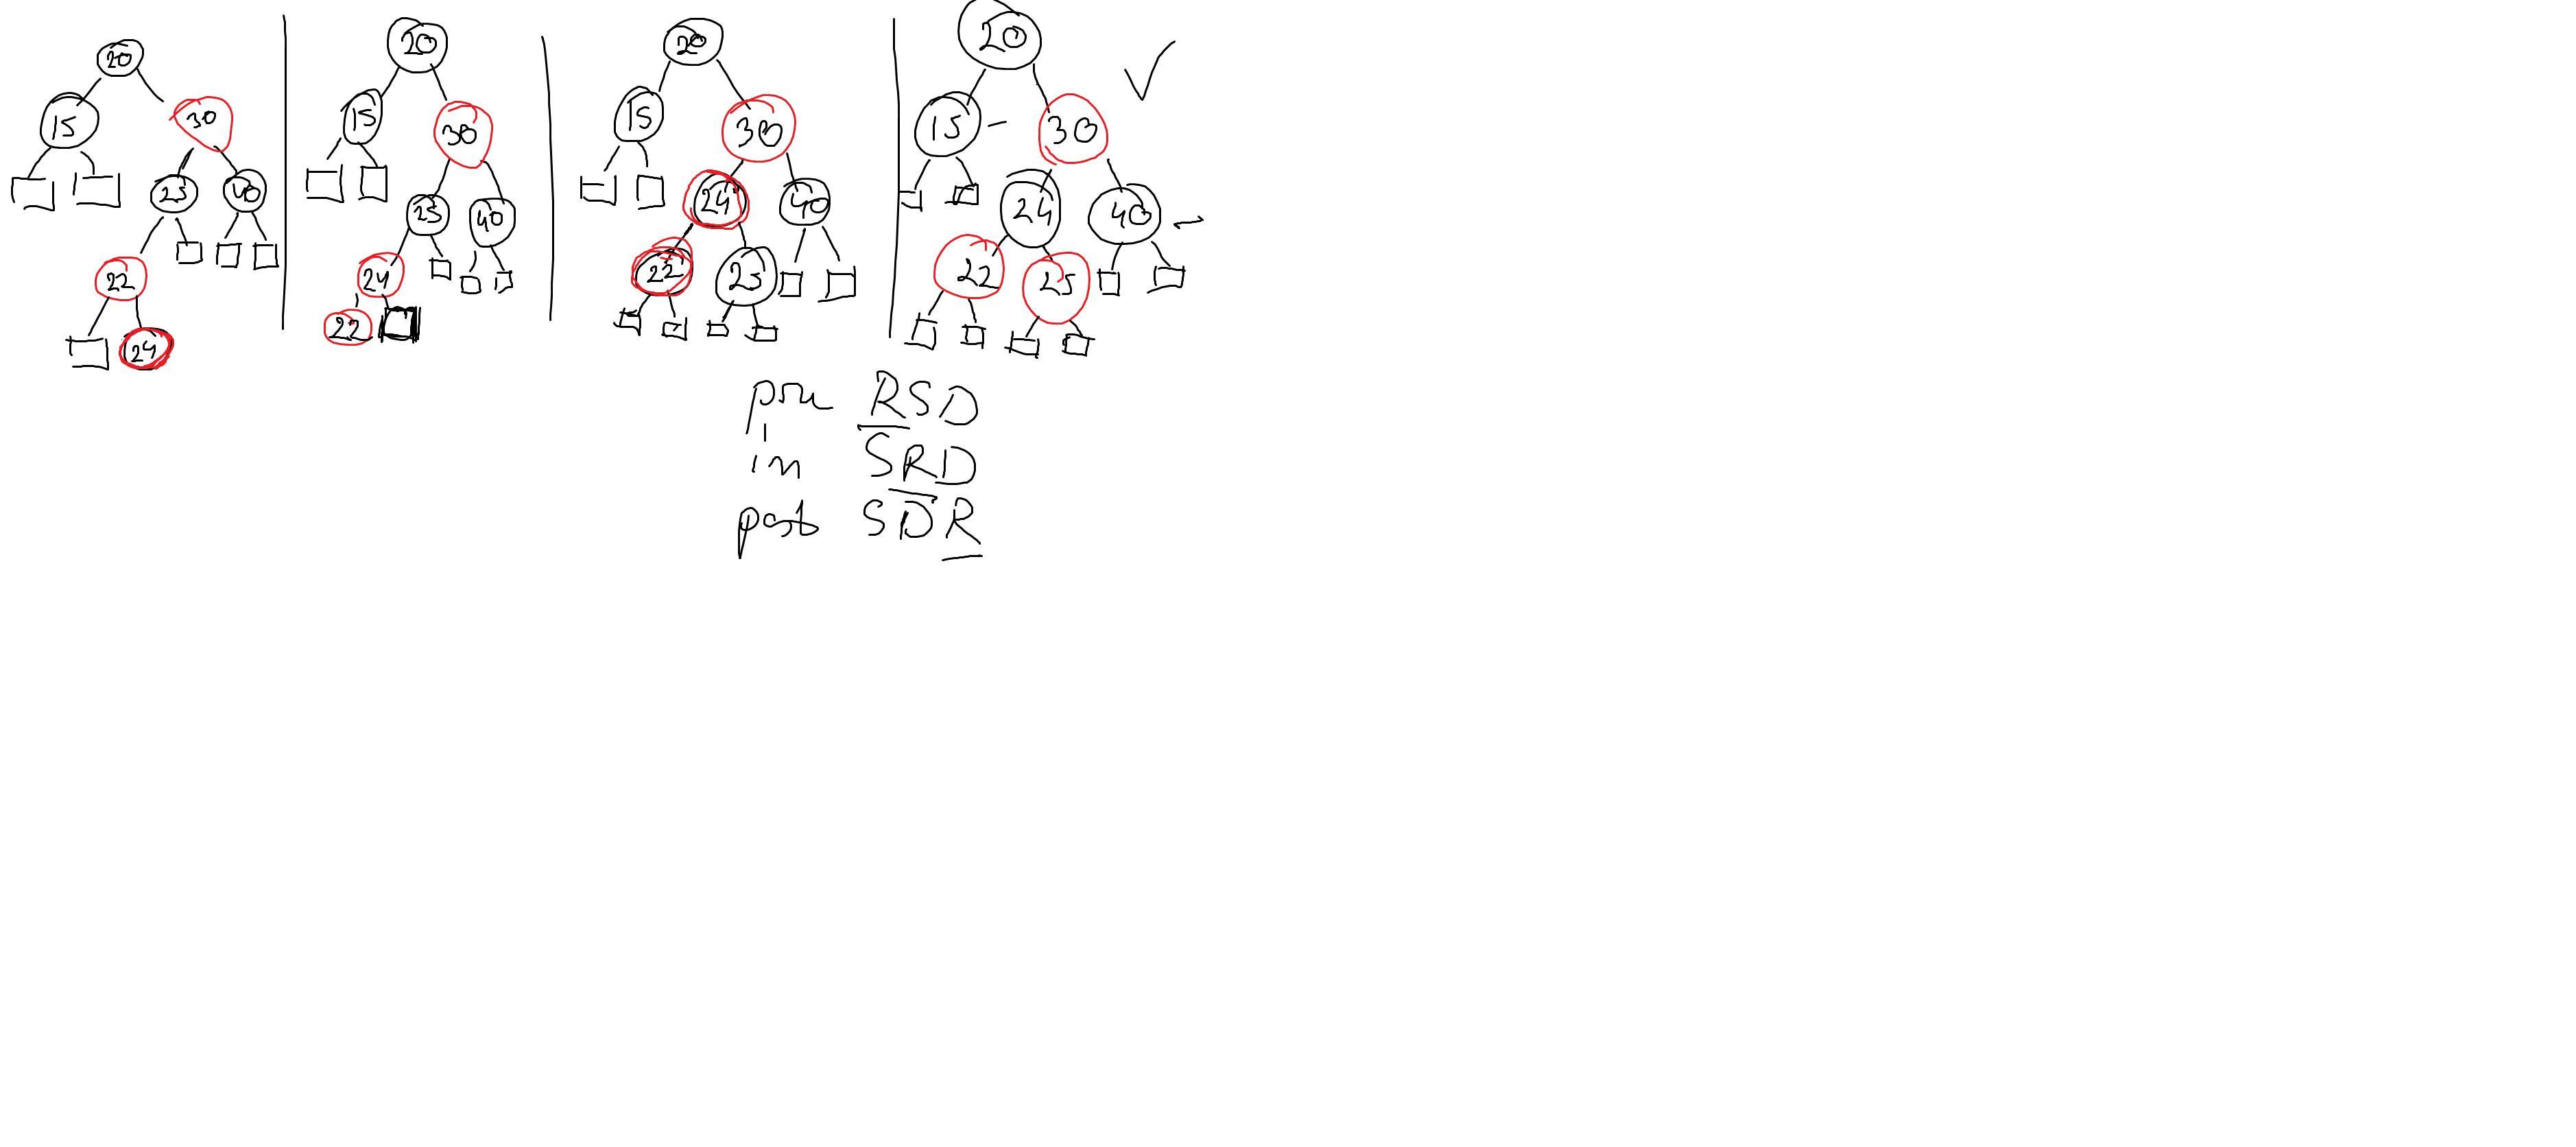 20
15 30
25 40
22
24
20
15 30
25 40
24
22
20
15 30
24 40
22 25
20
15 - 30
24 40
22 25
pre RSD
in SRD
post SDR